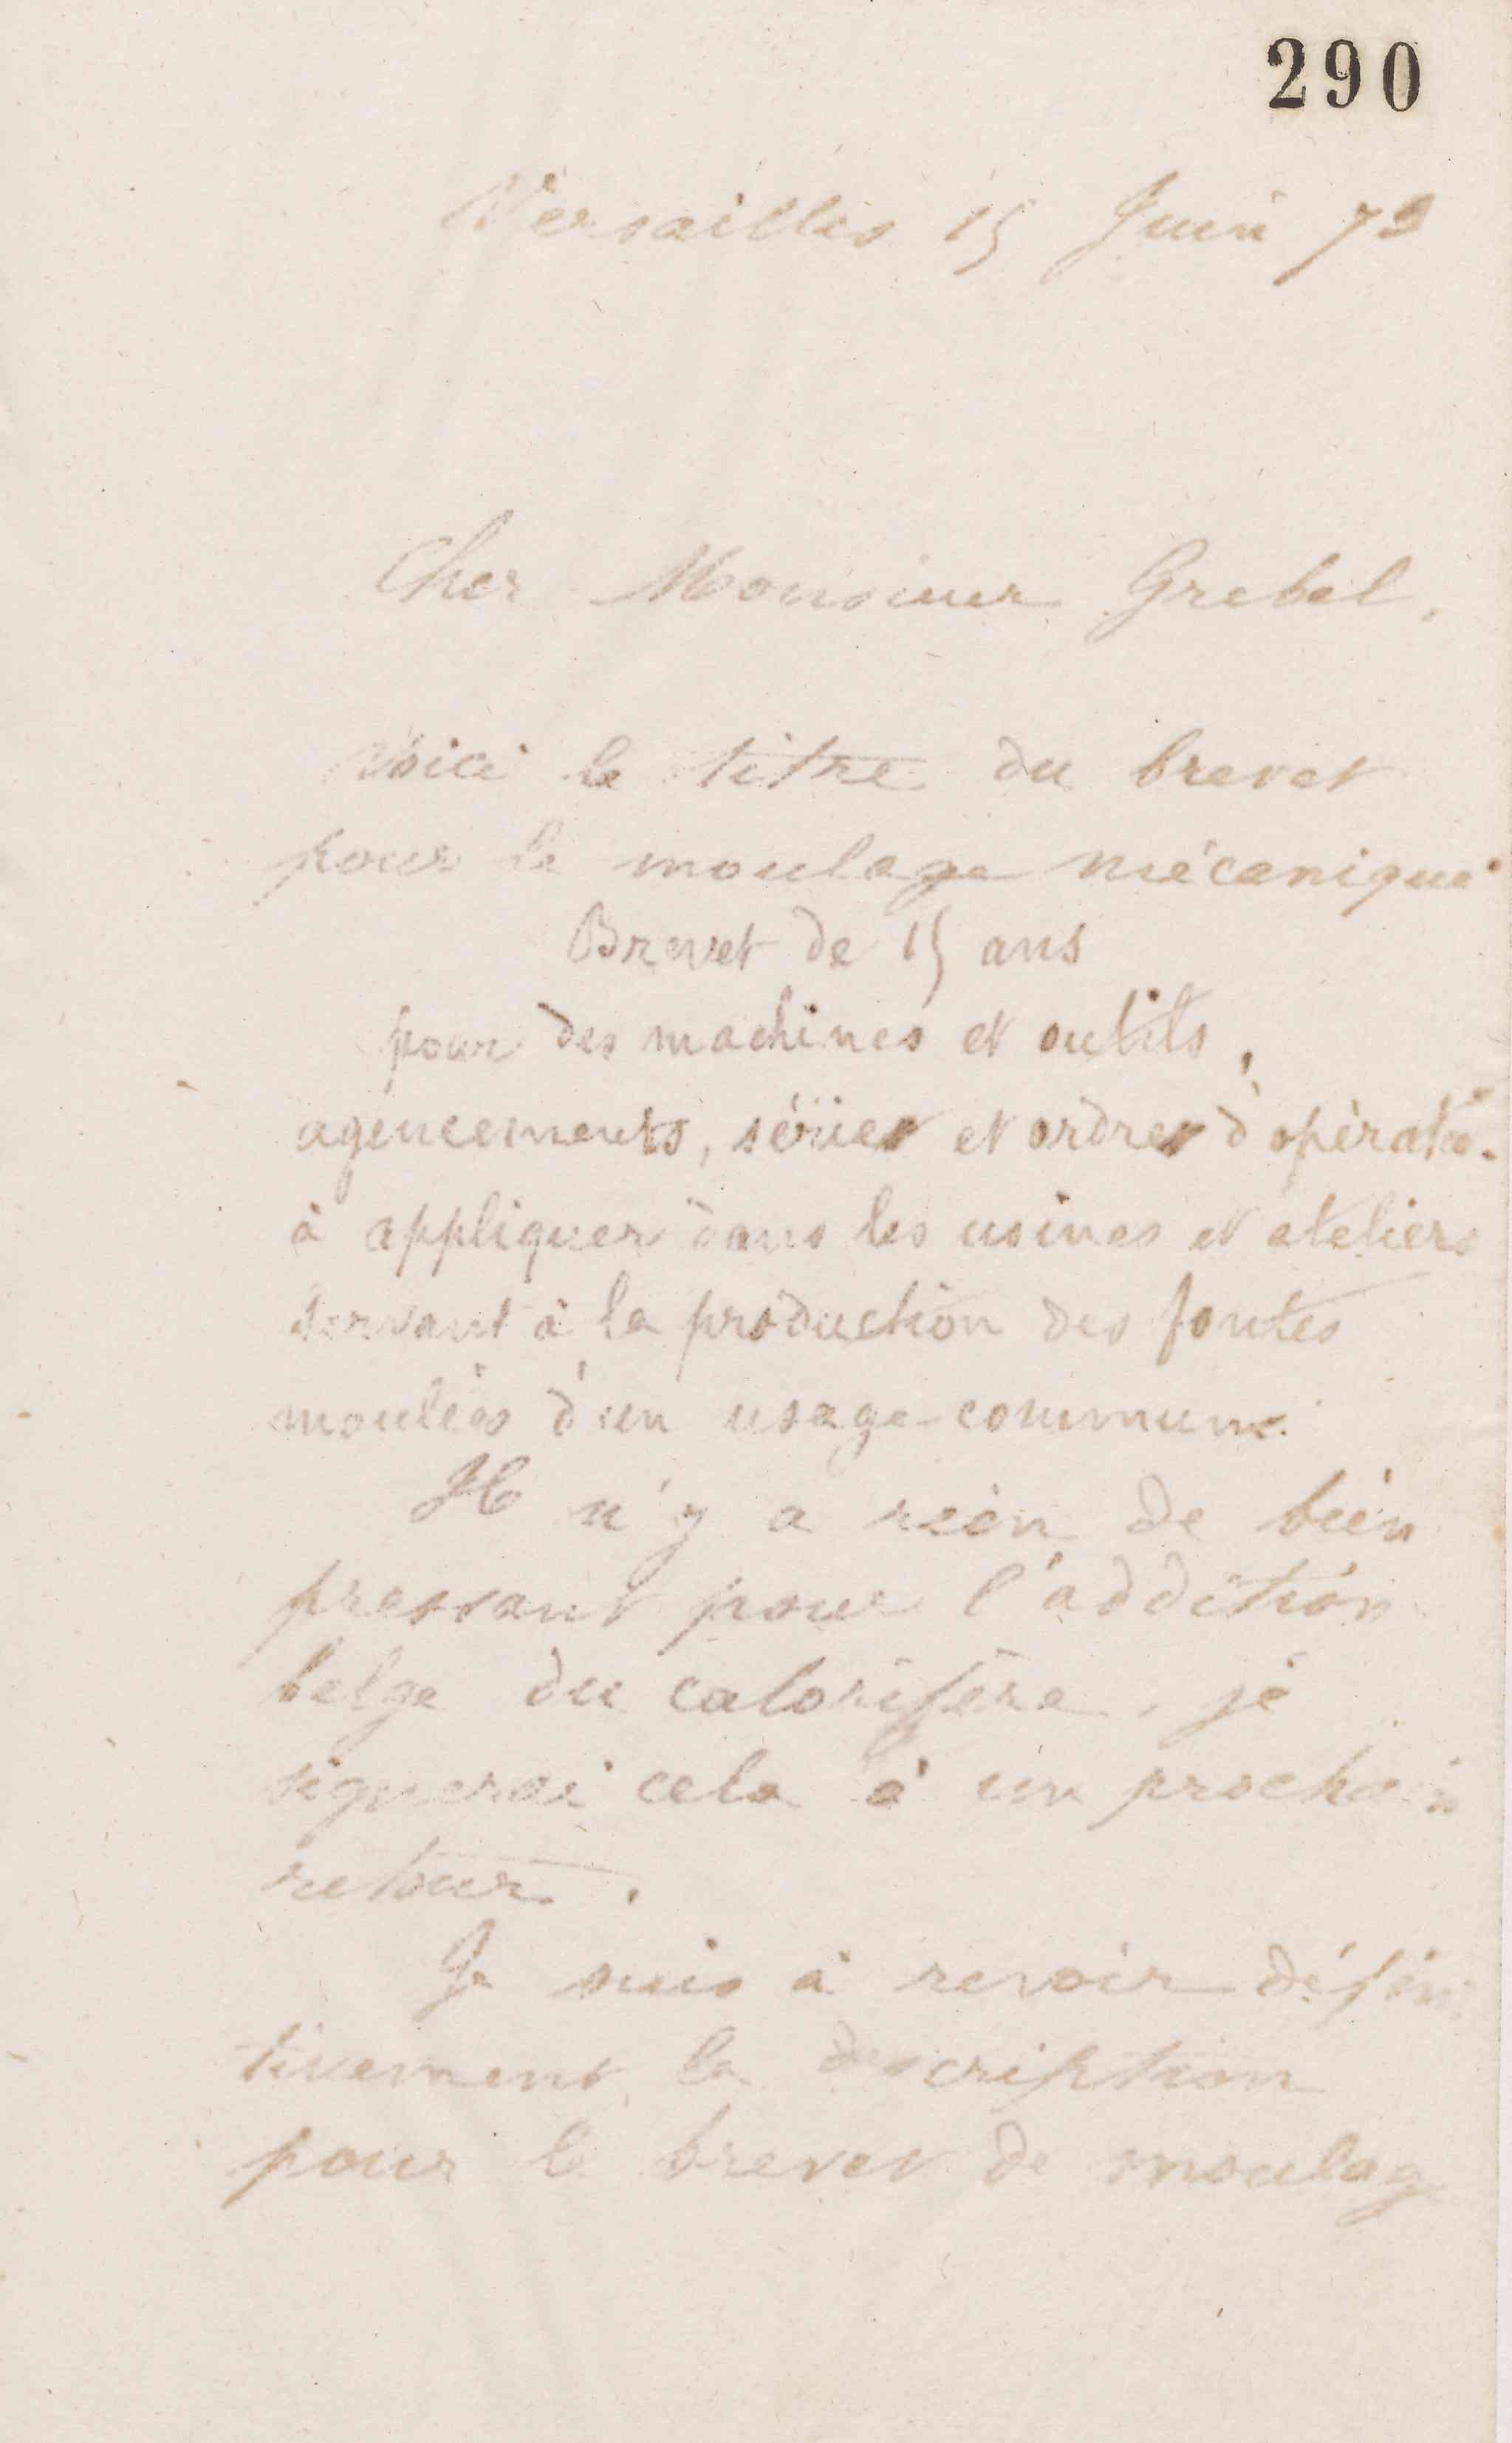 290
Versailles 15 Juin 73
Cher Monsieur Grebel,
Voici le titre du brevet
pour le moulage mécanique
Brevet de 15 ans
pour des machines et outils,
agencements, séries et ordres d'opérat.
à appliquer dans les usines et ateliers
servant à la production des fontes
moulées d'un usage commun.
Il n'y a rien de bien
pressant pour l'addition
belge du calorifère, je
signerai cela à un prochain
retour.
Je suis à revoir défini
tivement la description
pour le brevet de moulage